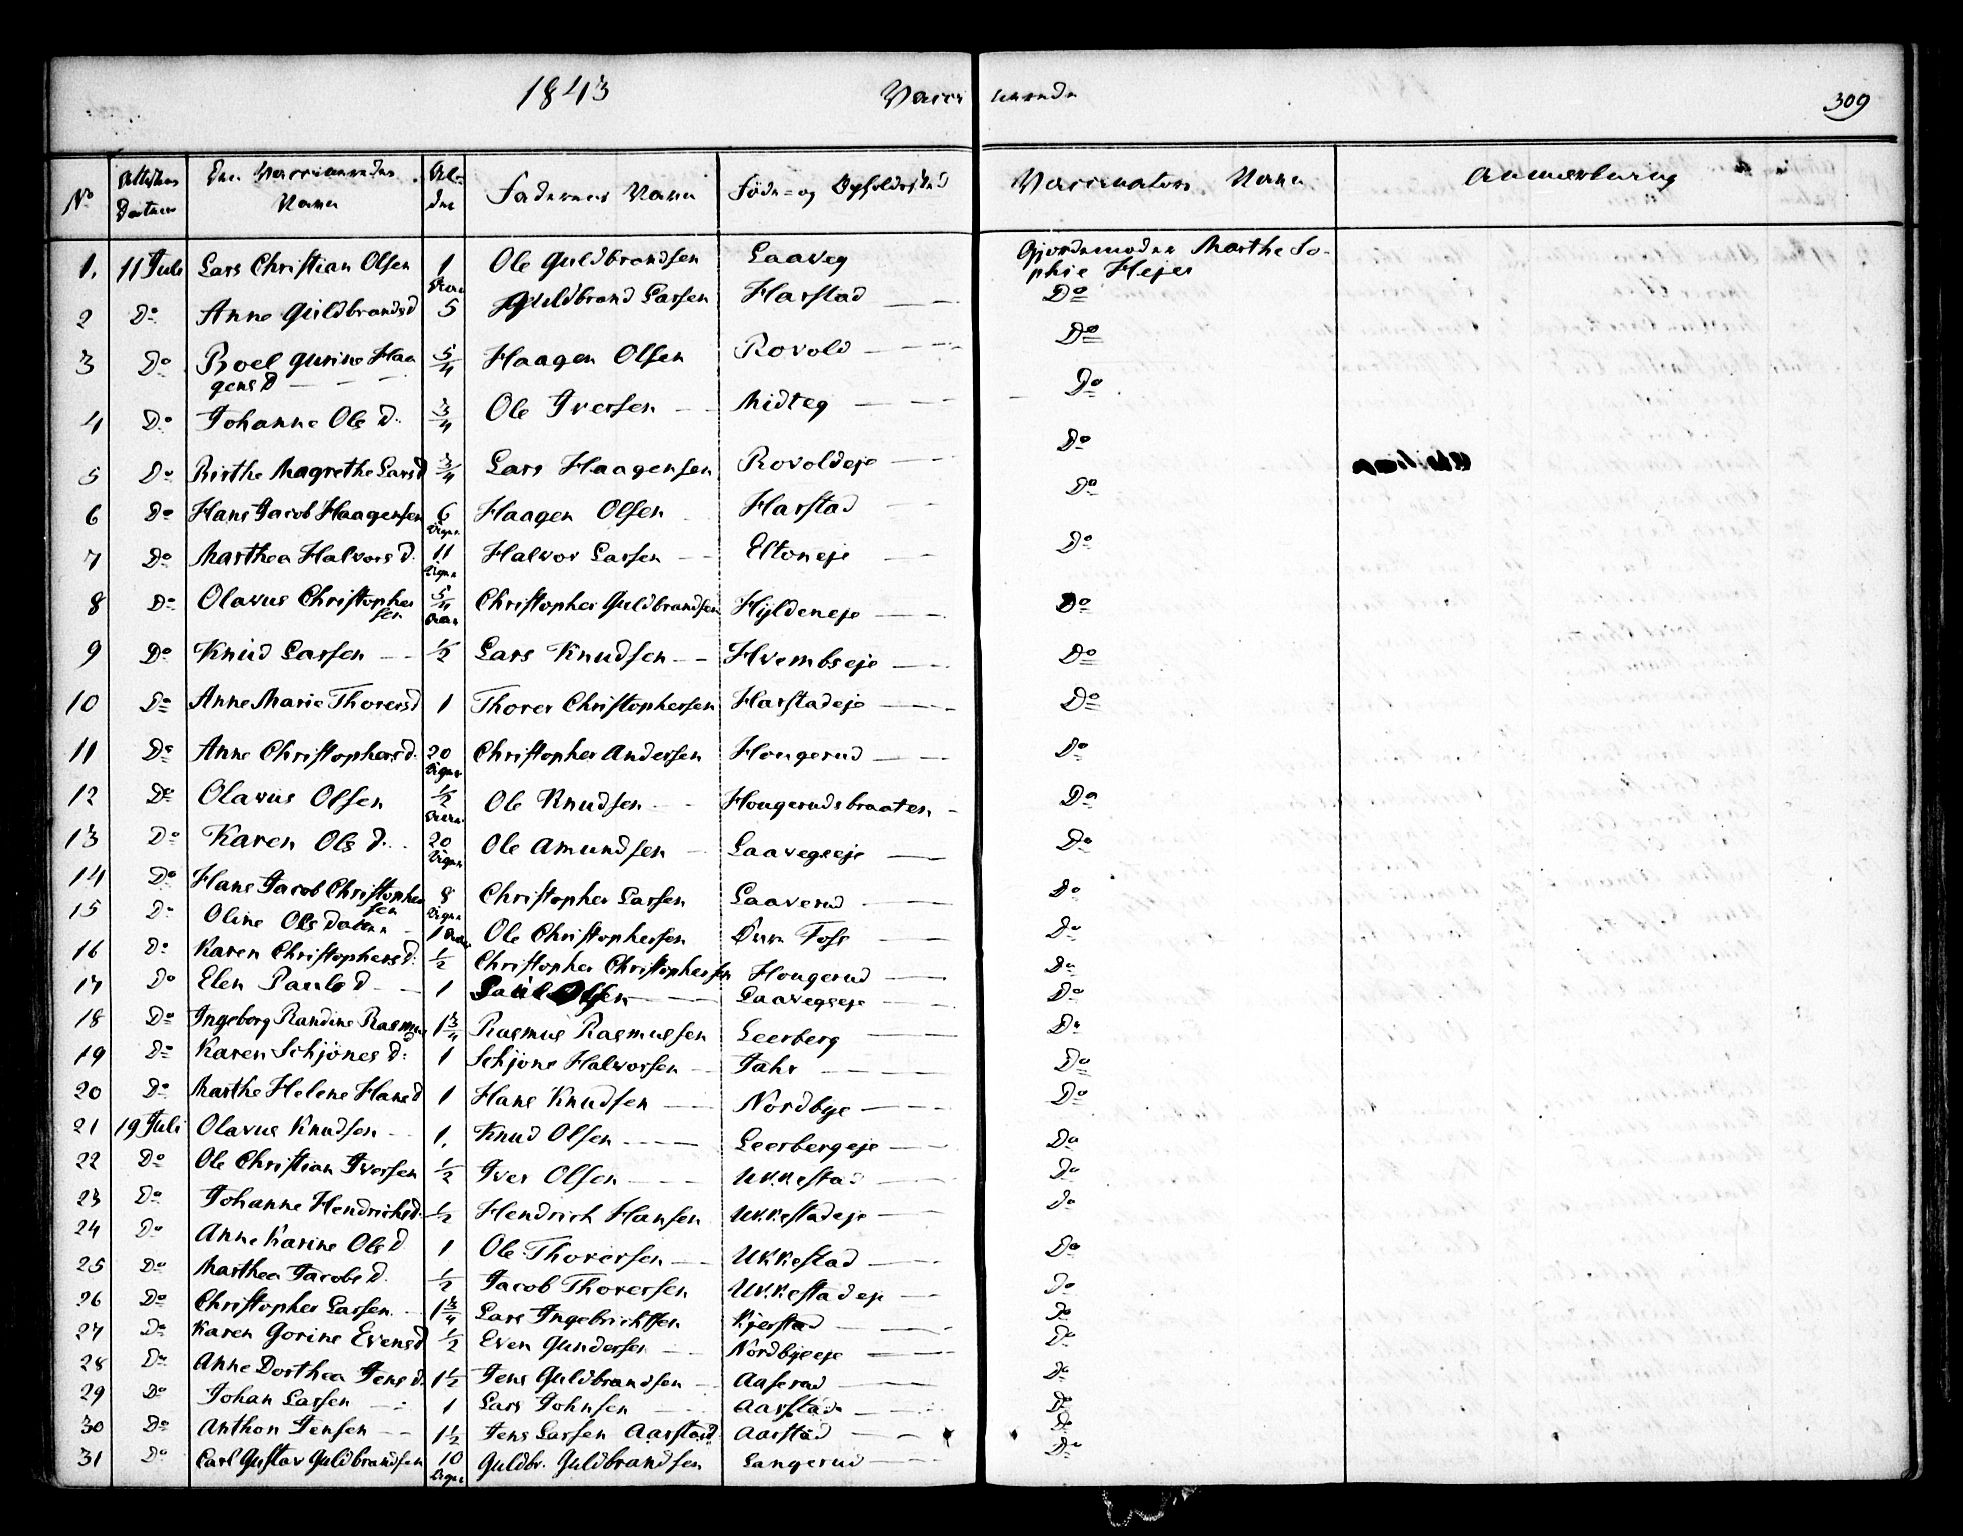 1843 Vacci nerede 309
No Attestens Datum Den Vaccineredes Navn Al- der Faderens Navn Føde- og Opholdssted Vaccinateurs Navn Anmærkning
1. 11 Juli Lars Christian Olsen 1 Ole Guldbrandsen Laaveg Gjordemoder Marthe So-
phie Hejer
2 Do Anne Guldbrandsd 5 Guldbrand Larsen Harstad Do
3 Do Roel Gurine Haa 5/4 Haagen Olsen Rovold Do
gensd
4 Do Johanne Olsd. 3/4 Ole Iversen Midteg Do
5 Do Birthe Magrethe Larsd 3/4 Lars Haagensen Rovoldeje Do
6 Do Hans Jacob Haagensen 6 Uger Haagen Olsen Harstad Do
7 Do Marthea Halvorsd. 11 Uger Halvor Larsen Eltoneje Do
8 Do Olavus Christopher 5/4 Christopher Guldbrandsen Hyldeneje Do
sen
9 Do Knud Larsen 1/2 Lars Knudsen Hvembseje Do
10 Do Anne Marie Thorersd 1 Thorer Christophersen Harstadeje Do
11 Do Anne Christophersd. 20 Uger Christopher Andersen Hougerud Do
12 Do Olavus Olsen 1/2 Ole Knudsen Hougerudsbraaten Do
13 Do Karen Olsd. 20 Uger Ole Amundsen Laavegseje Do
14 Do Hans Jacob Christopher 8 Uger Christopher Larsen Laaverud Do
sen
15 Do Oline Olsdatter 1 Ole Christophersen Foss Do
16 Do Karen Christophersd. 1/2 Christopher Christophersen Hougerud Do
17 Do Elen Paulsd 1 Paul Olsen Laavegseje Do
18 Do Ingeborg Randine Rasmus 1 3/4 Rasmus Rasmussen Leerberg Do
19 Do Karen Schjönesd. 1 Schjöne Halvorsen Fahr Do
20 Do Marthe Helene Hansd 1 Hans Knudsen Nordbye Do
21 19 Juli Olavus Knudsen 1. Knud Olsen Leerbergeje Do
22 Do Ole Christian Iversen 1/2 Iver Olsen Ukkestad Do
23 Do Johanne Hendrichsd. 1/2 Hendrich Hansen Ukkestadeje Do
24 Do Anne Karine Olsd 1 Ole Thorersen Ukkestad Do
25 Do Marthea Jacobsd. 1/2 Jacob Thorersen Ukkestadeje Do
26 Do Christopher Larsen 1 3/4 Lars Ingebrichtsen Kjerstad Do
27 Do Karen Gorine Evensd 1/2 Even Gundersen Nordbyeeje Do
28 Do Anne Dorthea Jensd. 1 1/2 Jens Guldbrandsen Aaserud Do
29 Do Johan Larsen 1 Lars Johnsen Aarstad Do
30 Do Anthon Jensen 1 1/2 Jens Larsen Aarstad Aarstad Do
31 Do Carl Gustav Guldbrandsen 10 Uger Guldbr. Guldbrandsen Langerud Do